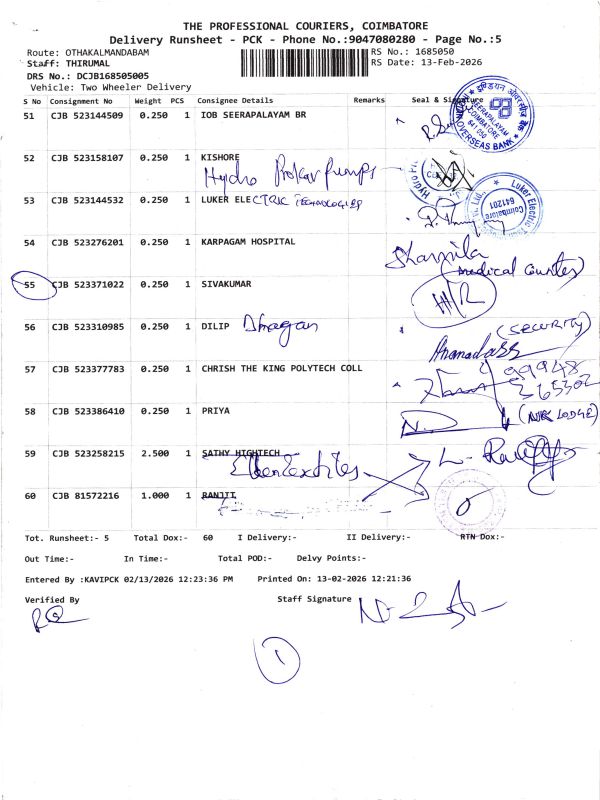 THE PROFESSIONAL COURIERS, COIMBATORE
Delivery Runsheet - PCK - Phone No.:9047080280 - Page No.:5
Route: OTHAKALMANDABAM RS No.: 1685050
Staff: THIRUMAL RS Date: 13-Feb-2026
DRS No.: DCJB168505005
Vehicle: Two Wheeler Delivery
S No Consignment No Weight PCS Consignee Details Remarks Seal & Signature
51 CJB 523144509 0.250 1 IOB SEERAPALAYAM BR
SEERAPALAYAM
COIMBATORE
641 050
OVERSEAS BANK
52 CJB 523158107 0.250 1 KISHORE
Hydro Prokav Pumps
53 CJB 523144532 0.250 1 LUKER ELECTRIC TECHNOLOGIES
Luker Electric
Coimbatore
641201
54 CJB 523276201 0.250 1 KARPAGAM HOSPITAL
Sharmila
(medical counter)
55 CJB 523371022 0.250 1 SIVAKUMAR
H/R
56 CJB 523310985 0.250 1 DILIP
(SECURITY)
57 CJB 523377783 0.250 1 CHRISH THE KING POLYTECH COLL
99948
365302
58 CJB 523386410 0.250 1 PRIYA
LODGE)
59 CJB 523258215 2.500 1 SATHY HIGHTECH
60 CJB 81572216 1.000 1 RANJIT
Tot. Runsheet:- 5 Total Dox:- 60 I Delivery:- II Delivery:- RTN Dox:-
Out Time:- In Time:- Total POD:- Delvy Points:-
Entered By :KAVIPCK 02/13/2026 12:23:36 PM Printed On: 13-02-2026 12:21:36
Verified By Staff Signature
1